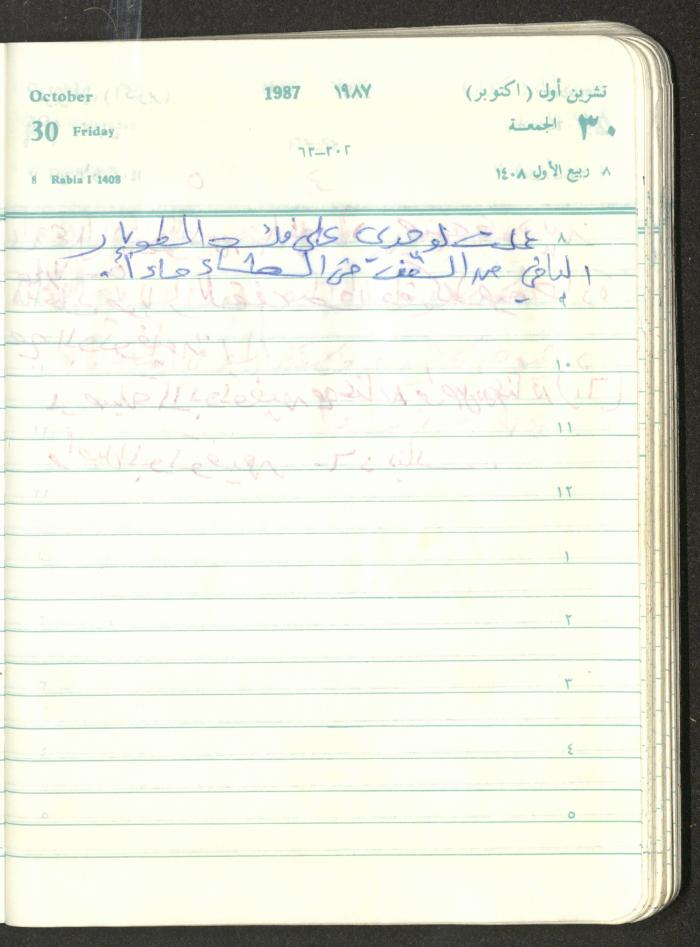 October 1987 ١٩٨٧ تشرين أول (اكتوبر)
30 Friday الجمعـة ٣٠
٣٠٢–٦٣
8 Rabia I 1408 ٨ ربيع الأول ١٤٠٨
٨ عملت لوحدي على فك الطوبار
الباقي من السقف حتى المساء
٩
١٠
١١
١٢
١
٢
٣
٤
٥